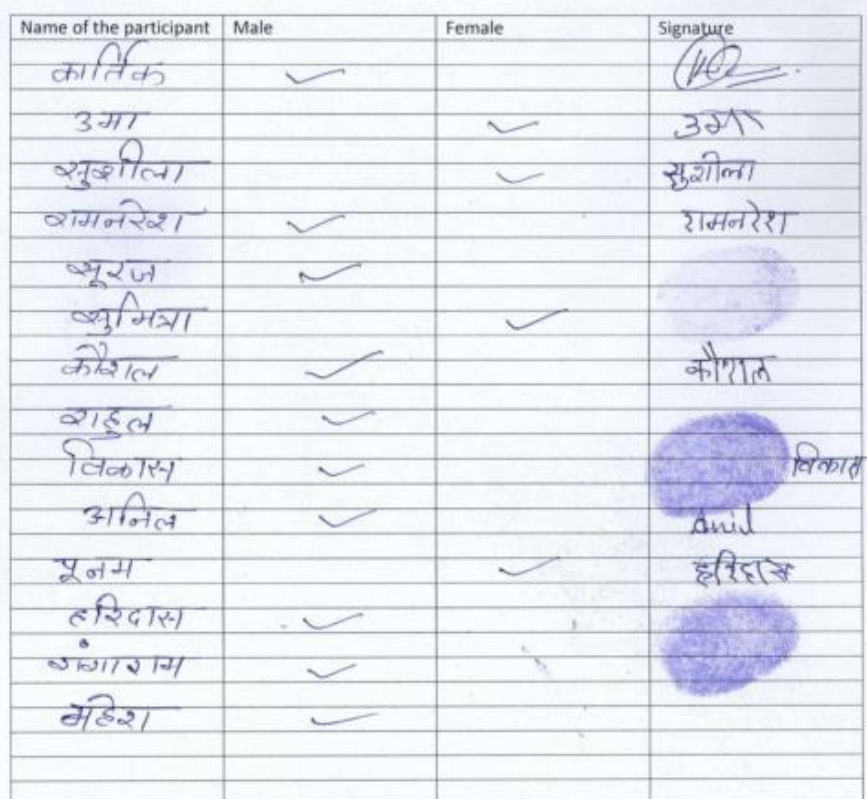 Name of the participant Male Female Signature
कार्तिक ✓
उमा ✓ उमा
सुशीला ✓ सुशीला
रामनरेश ✓ रामनरेश
सूरज ✓
सुमित्रा ✓
कौशल ✓ कौशल
राहुल ✓
विकास ✓ विकास
अनिल ✓ Anil
पूनम ✓ हरिदास
हरिदास ✓
गंगाराम ✓
महेश ✓